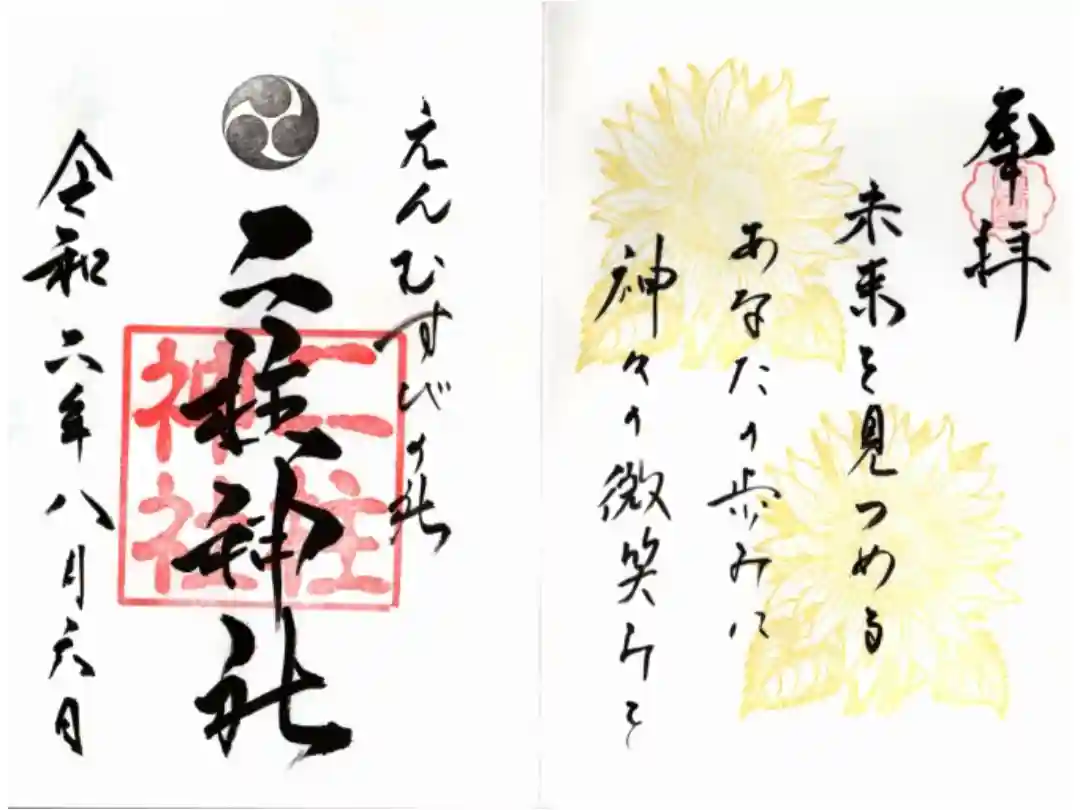 奉拝
未来を見つめる
あなたの歩みに
神々の微笑みを
えんむすびの社
二柱神社
二柱
神社
令和六年八月六日